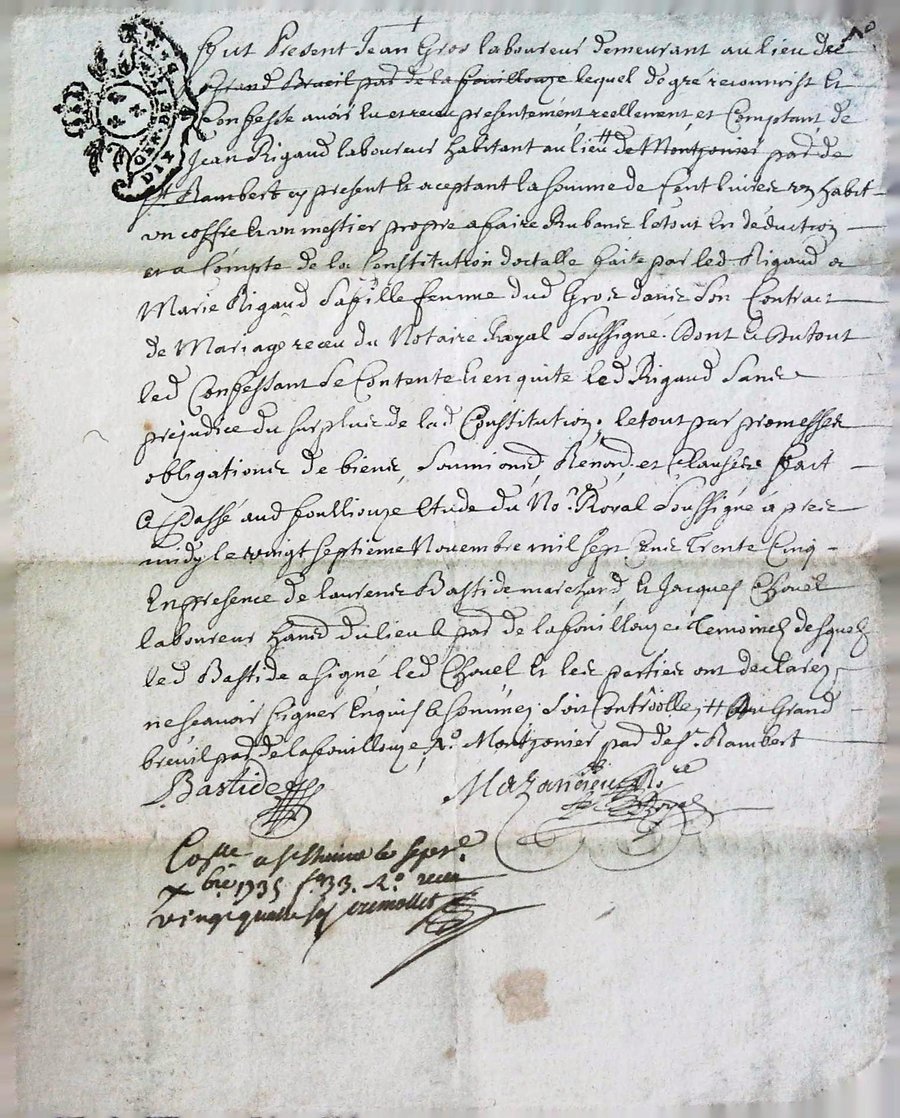 Fut Present Jean Gros laboureur demeurant au lieu du
Grand Breuil par. de la fouillouze lequel de gre reconnoist Et
Confesse avoir Eu et receu presentement, reellement, et Comptant, de
Jean Rigaud laboureur habitant au lieu # de Montjonier par. de
St. Rambert cy present Et aceptant la somme de Cent livres un habit
un coffre Et un mestier propre a faire Rubans le tout En deduction
et a Compte de la Constitution dotalle faite par led Rigaud a
Marie Rigaud Sa fille femme dud Gros dans Son Contract
de Mariage receu du Notaire Royal Soussigné. Dont Et du tout
led Confessant Se Contente Et en quite led Rigaud Sans
prejudice du Surplus de lad Constitution, le tout par promesses
obligations de biens, Soumions, Renons, et Clauses fait
Et Passé aud fouillouze Etude du No.re Royal Soussigné apres
midy le vingt septieme Novembre mil sept Cens Trente Cinq
En presence de laurens Bastide marchand, Et Jacques Chovel
laboureur hans du lieu Et par. de la fouillouze Temoins desquels
led Bastide a signé led Chovel Et les parties ont declarez
ne scavoir signer Enquis Et Sommez Soit Controolle, # Au Grand
breuil par. de la fouillouze, Montjonier par. de St. Rambert
Bastide
Mazancieu
Co.lle a St Etienne le sept.
Xbre 1735 f.o 33. R.o receu
vingt quatre sols
GEN. DE
DIX